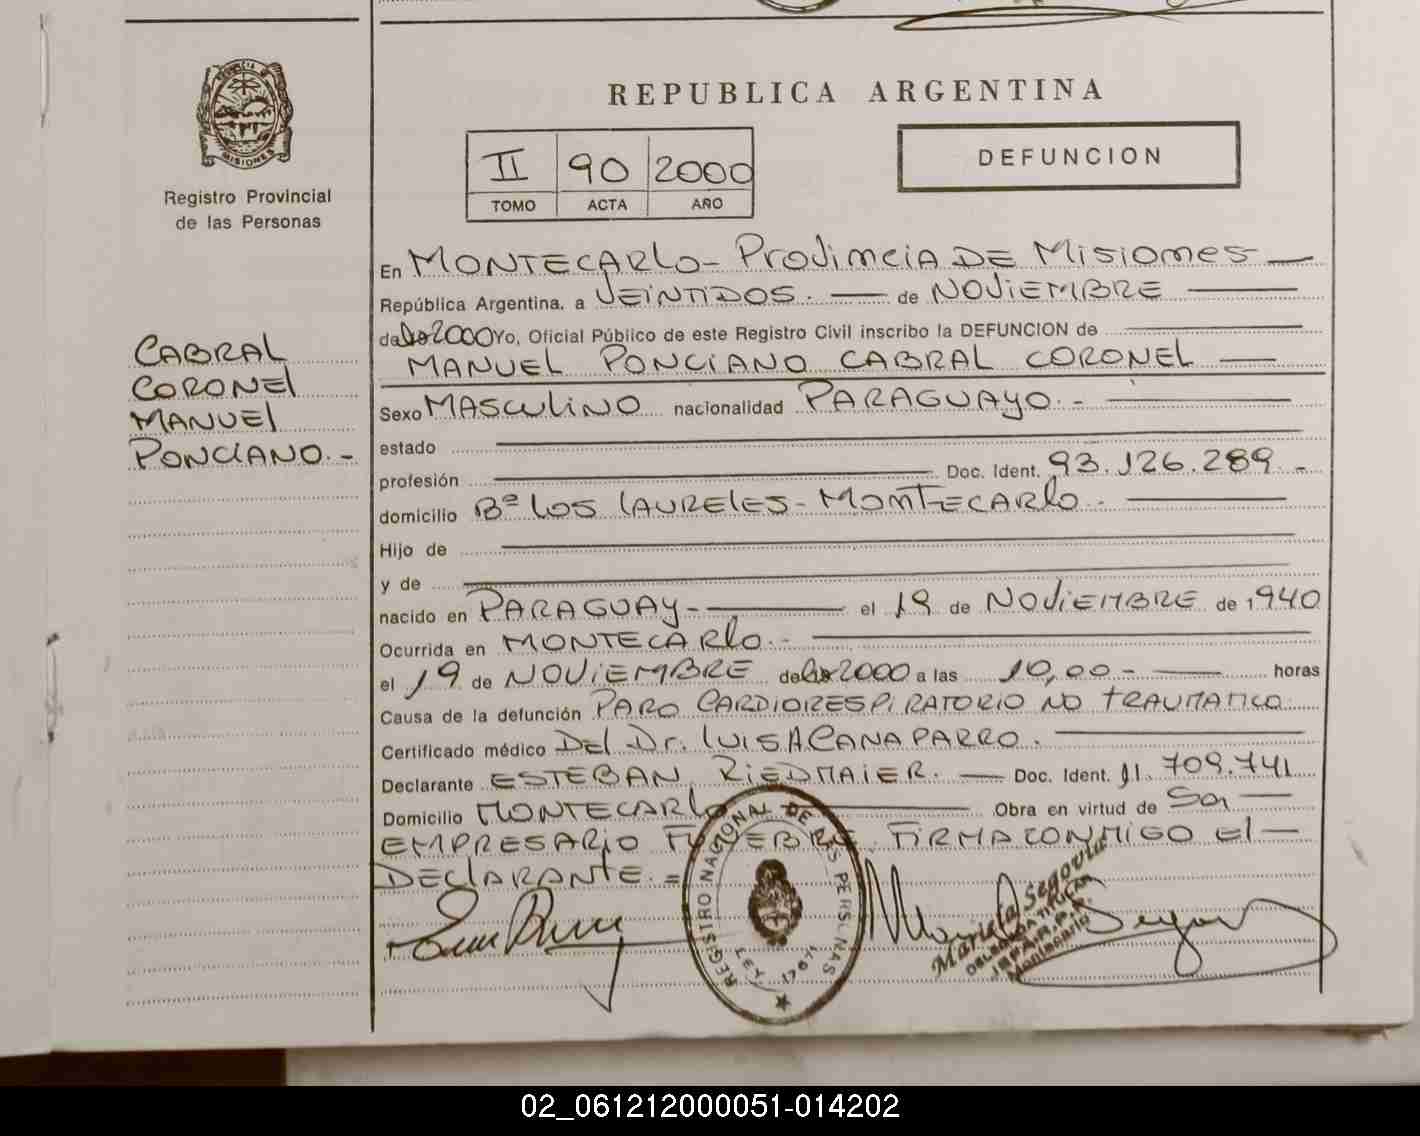 PROVINCIA DE
MISIONES
Registro Provincial
de las Personas
CABRAL
CORONEL
MANUEL
PONCIANO.-
REPUBLICA ARGENTINA
II 90 2000
TOMO ACTA AÑO
DEFUNCION
En MONTECARLO - Provincia DE Misiones
República Argentina, a VEINTIDOS. de NOVIEMBRE
de 2000 Yo, Oficial Público de este Registro Civil inscribo la DEFUNCION de
MANUEL PONCIANO CABRAL CORONEL
Sexo MASCULINO nacionalidad PARAGUAYO.-
estado
profesión Doc. Ident. 93.126.289.-
domicilio Bº LOS LAURELES - MONTECARLO.-
Hijo de
y de
nacido en PARAGUAY - el 19 de NOVIEMBRE de 1940
Ocurrida en MONTECARLO.-
el 19 de NOVIEMBRE de 2000 a las 10,00 - horas
Causa de la defunción PARO CARDIORESPIRATORIO NO TRAUMATICO
Certificado médico DEL Dr. LUIS A CANAPARRO.
Declarante ESTEBAN RIEDMAIER. Doc. Ident. 11.709.741
Domicilio MONTECARLO Obra en virtud de Ser
EMPRESARIO FUNEBRE. FIRMA CONMIGO El
DECLARANTE.=
REGISTRO NACIONAL DE LAS PERSONAS
LEY 17671
Mariela Segovia
Montecarlo
02_061212000051-014202